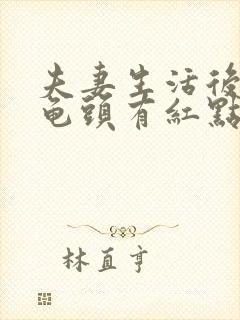 夫妻生活後
龟頭有紅點
林直亨